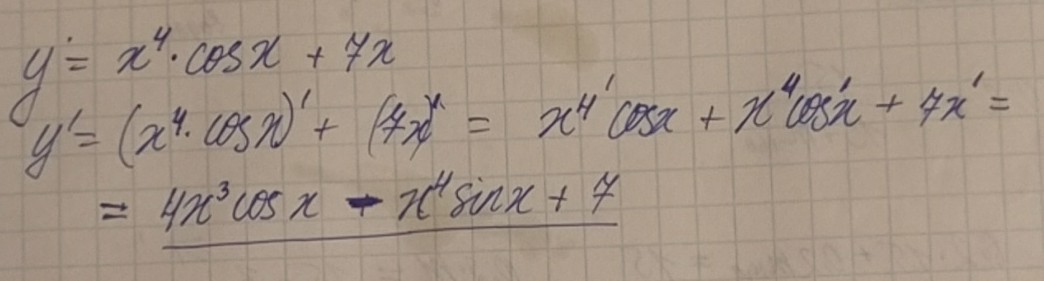 y = x⁴ · cos x + 7x
y' = (x⁴ · cos x)' + (7x)' = x⁴' cos x + x⁴ cos'x + 7x' =
= 4x³ cos x - x⁴ sin x + 7